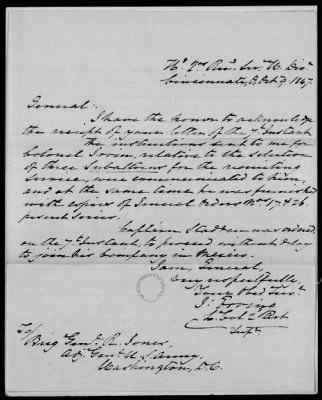 Hd. 2nd Reg. Inv. W. Divn.
Cincinnati, O, Oct. 9, 1847.
General:
I have the honor to acknowledge
the receipt of your letter of the 7th Instant.
the instructions sent to me for
Colonel Irvin, relative to the selection
of three Subalterns for the recruiting
Service, were communicated to him,
and at the same time he was furnished
with copies of General Orders Nos. 17 & 26
present Series.
Captain was ordered,
on the 7th Instant, to proceed without delay
to join his Company in Mexico.
I am, General,
very respectfully
Your Obed. Servt.
J. Erving
Lt. Col. 2. Art
Supt.
To/
Brig. Genl. R. Jones,
Adj. Genl. U. S. Army,
Washington, D. C.